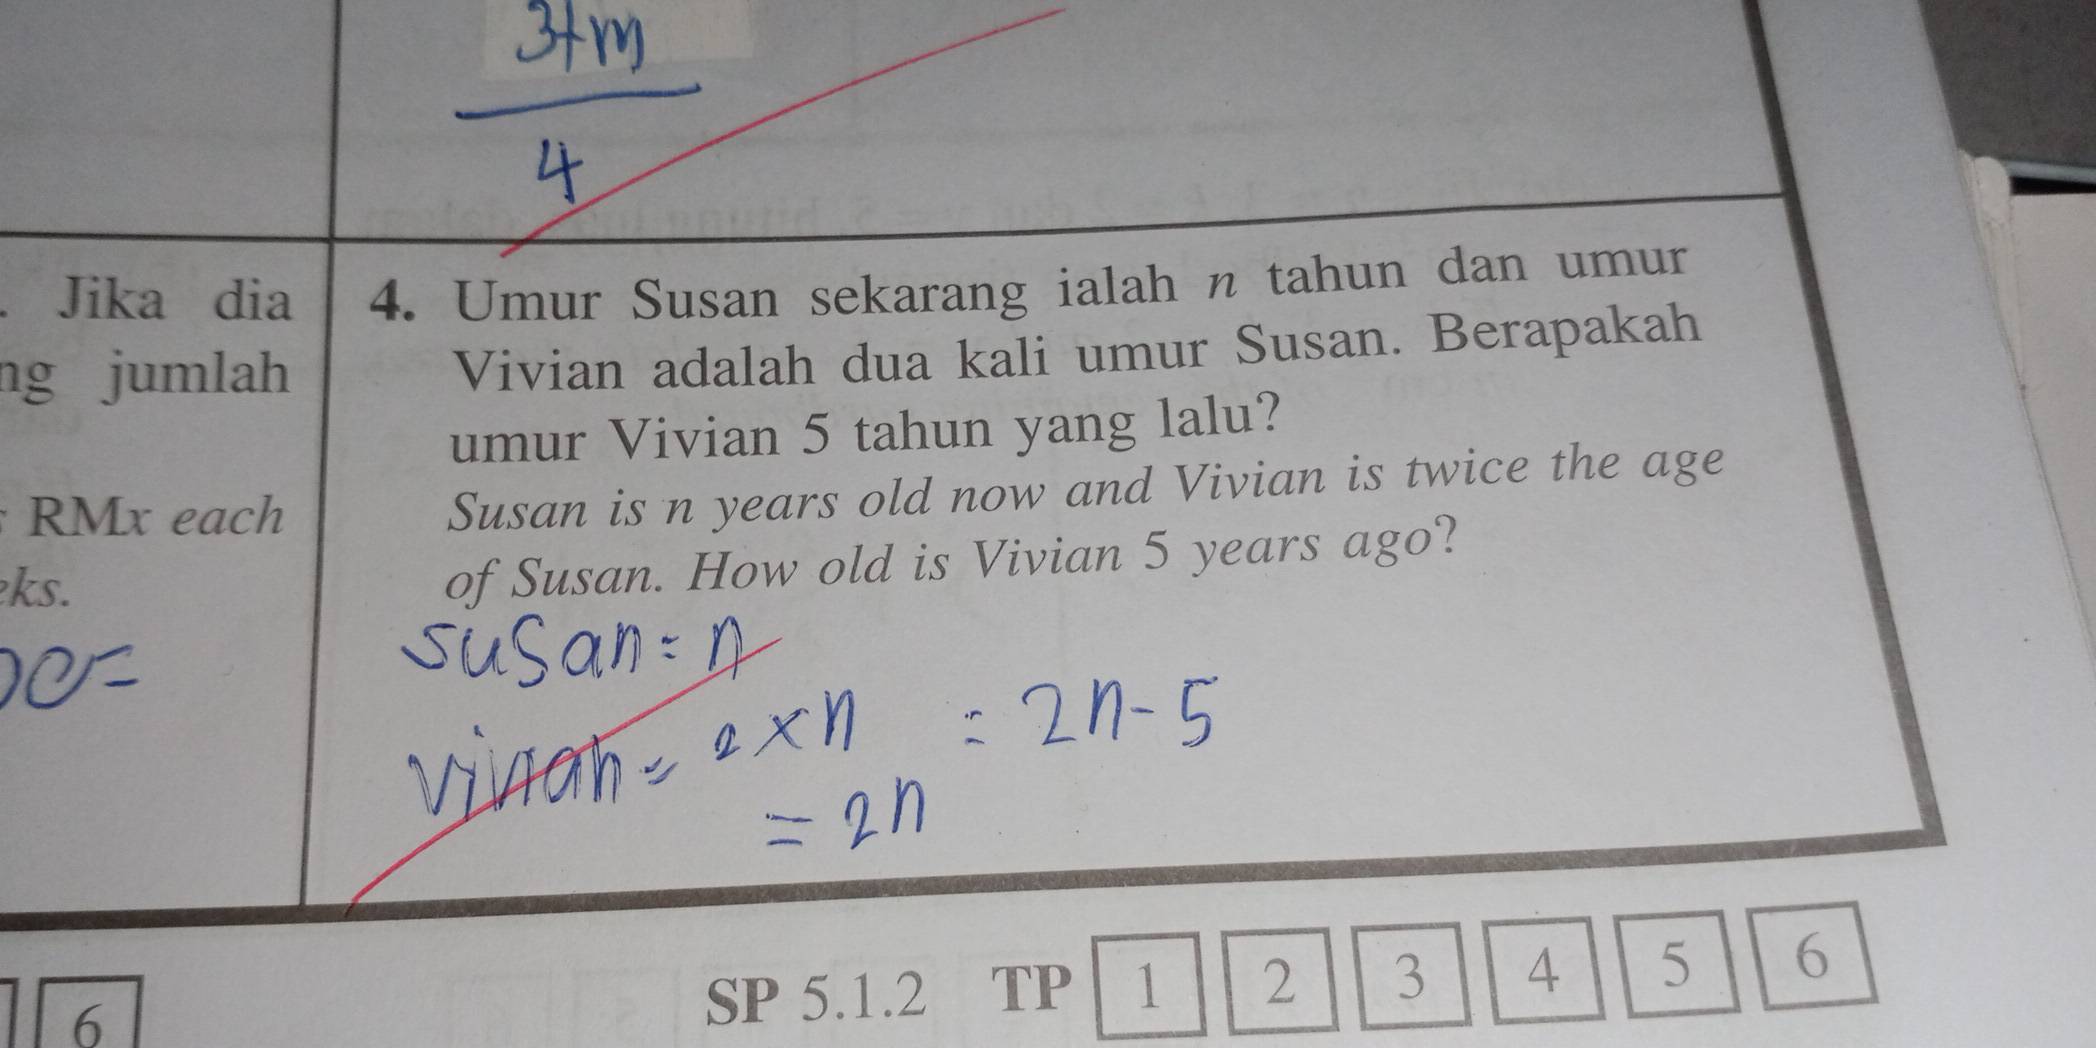 3+m
4
. Jika dia
ng jumlah
RMx each
eks.
4. Umur Susan sekarang ialah n tahun dan umur
Vivian adalah dua kali umur Susan. Berapakah
umur Vivian 5 tahun yang lalu?
Susan is n years old now and Vivian is twice the age
of Susan. How old is Vivian 5 years ago?
susan = n
vivian = 2 x n = 2n - 5
= 2n
6
SP 5.1.2 TP 1 2 3 4 5 6